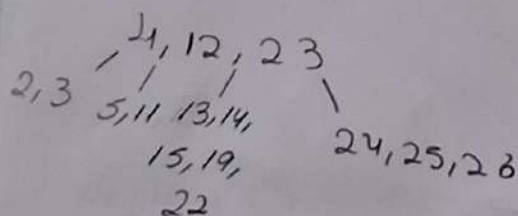 4, 12, 23
2, 3
5, 11
13, 14,
15, 19,
22
24, 25, 26